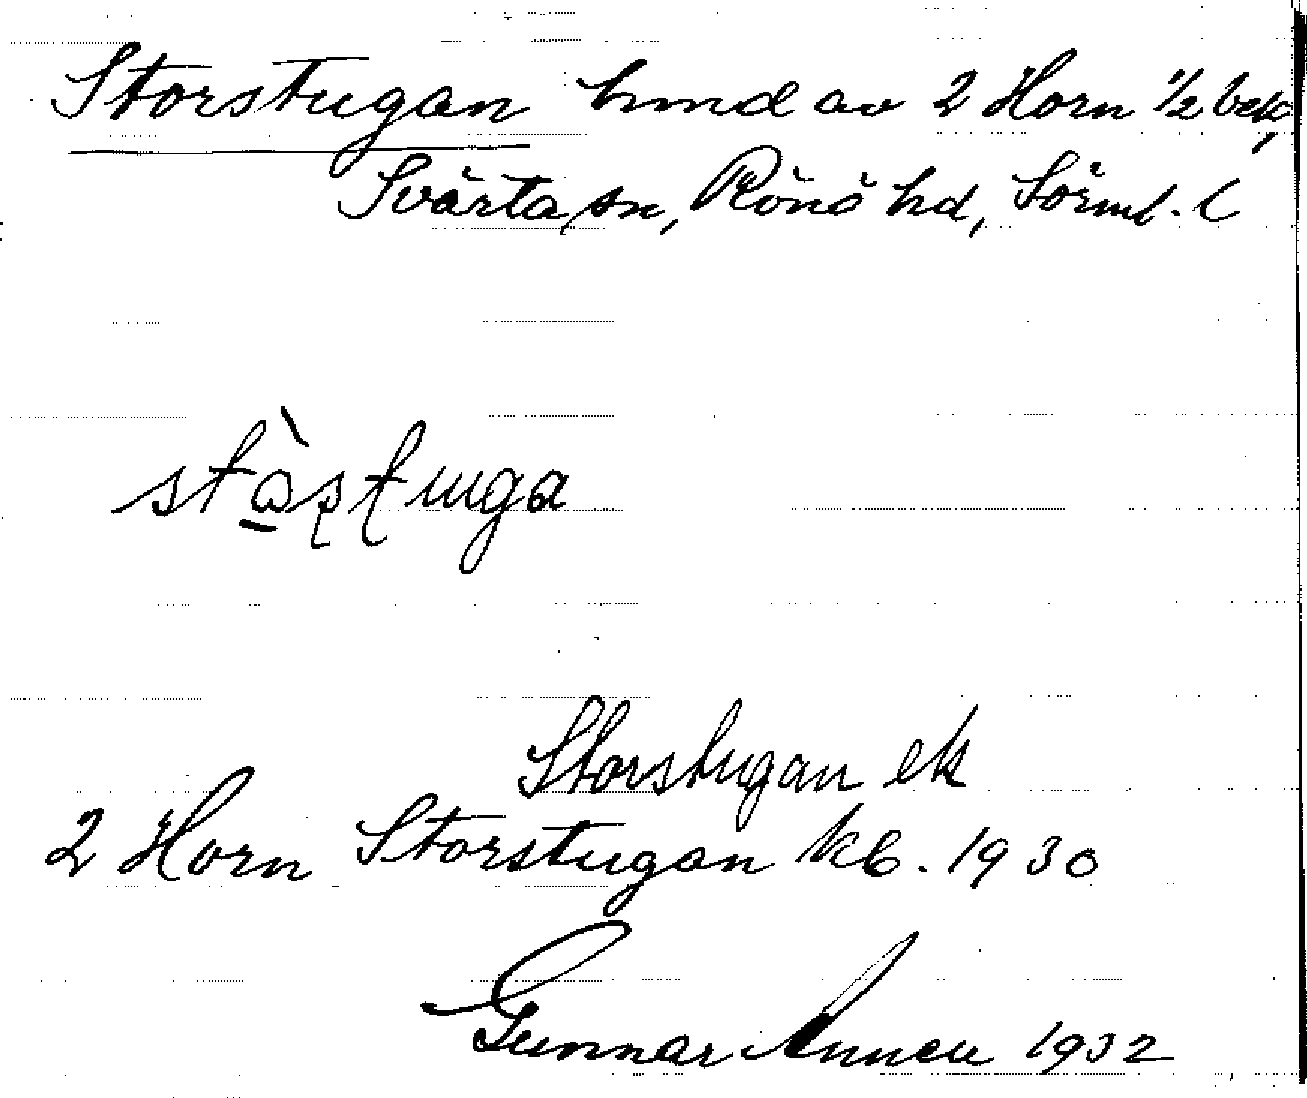 Storstugan hmd av 2 Horn 1/2 bek,
Svärta sn, Rönö hd, Sörml. l
Storstugan ek
2 Horn Storstugan kb. 1930
Gunnar 1932